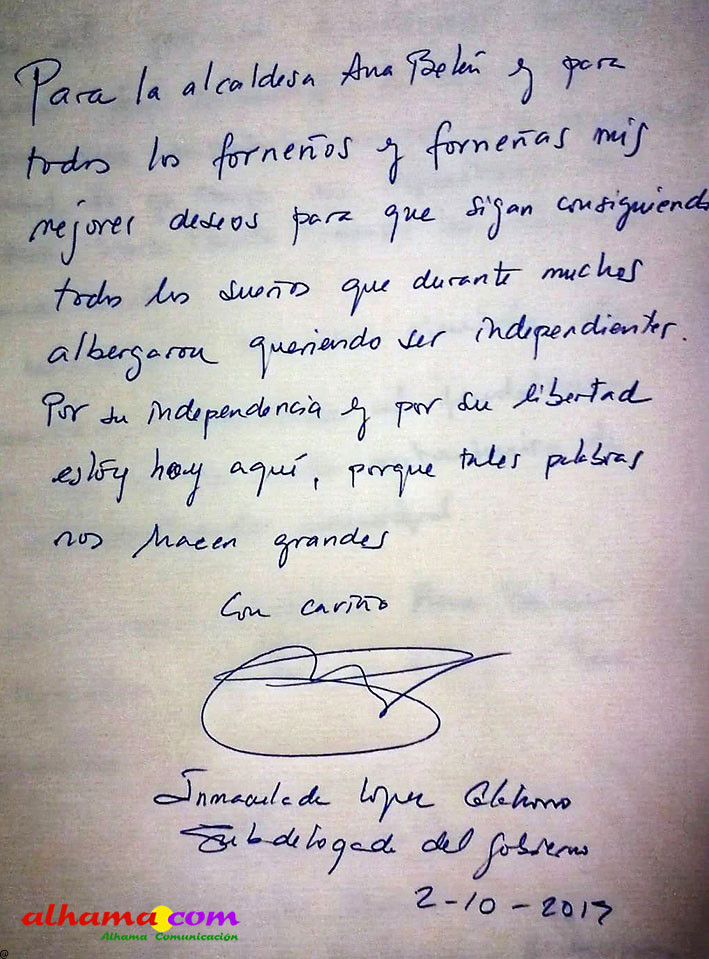 Para la alcaldesa Ana Belén y para
todos los forneños y forneñas mis
mejores deseos para que sigan consiguiendo
todos los sueños que durante muchos
albergaron queriendo ser independientes.
Por su independencia y por su libertad
estoy hoy aquí, porque tales palabras
nos hacen grandes
Con cariño
Inmaculada López Calahorro
Subdelegada del Gobierno
2-10-2017
alhama.com
Alhama Comunicación
@